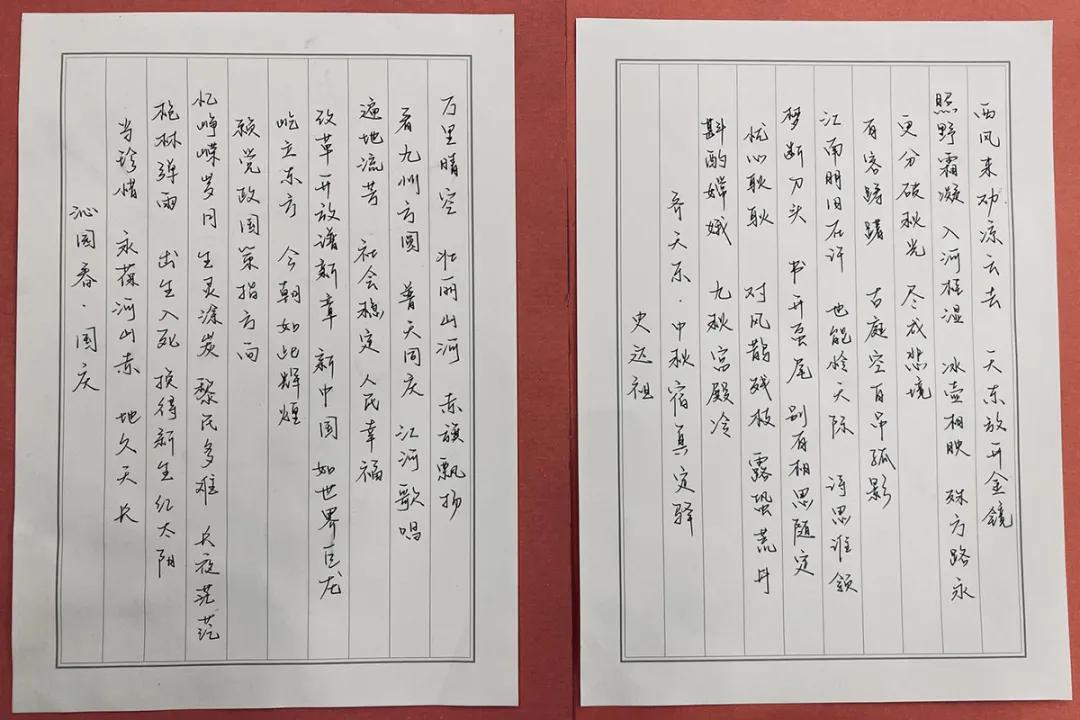 万里晴空 壮丽山河 赤旗飘扬
看九州方圆 普天同庆 江河歌唱
遍地流芳 社会稳定 人民幸福
改革开放谱新章 新中国 如世界巨龙
屹立东方 今朝如此辉煌
赖党政国策指方向
忆峥嵘岁月 生灵涂炭 黎民多难 长夜茫茫
枪林弹雨 出生入死 换得新生红太阳
当珍惜 永葆河山赤 地久天长
沁园春·国庆
西风来劝凉云去 天东放开金镜
照野霜凝 入河桂湿 冰壶相映 殊方路永
更分破秋光 尽成悲境
有客踌躇 古庭空自吊孤影
江南朋旧在许 也能怜天际 诗思谁领
梦断刀头 书开虿尾 别有相思随定
忧心耿耿 对风鹊残枝 露蛩荒井
斟酌嫦娥 九秋宫殿冷
齐天乐·中秋宿真定驿
史达祖